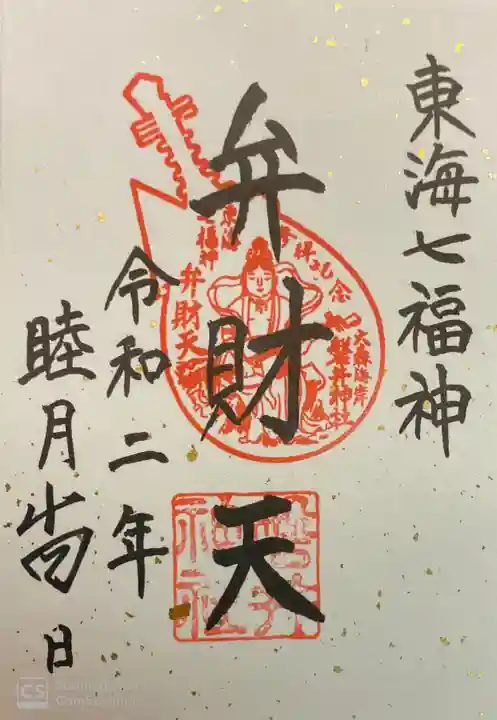 東海七福神
弁財天
令和二年
睦月吉日
東海
七福神
弁財天
磐井神社
大森海岸
CS
CamScanner